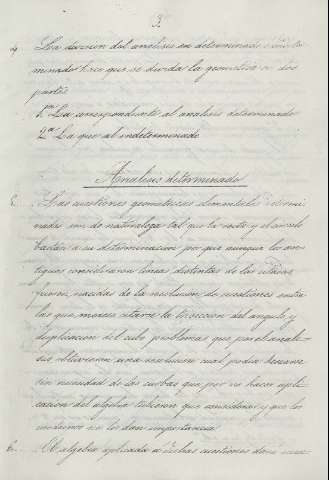 3
4. La division del analisis en determinado é indeter-
minado hizo que se divida la geometria en dos
partes
1ª La correspondiente al analisis determinado
2ª La que al indeterminado
Analisis determinado
5. Las cuestiones geometricas elementales determi-
nadas son de naturaleza tal que la recta y el circulo
bastan a su determinacion por que aunque los an-
tiguos consideraron lineas distintas de las citadas
fueron nacidas de la resolucion de cuestiones entre
las que merece citarse la triseccion del angulo y
duplicacion del cubo problemas que por el anali-
sis obtuvieron una resolucion cual podia desearse
sin necesidad de las curbas que por no hacer apli-
cacion del algebra tubieron que considerar y que los
modernos no les dan importancia
6. El algebra aplicada a dichas cuestiones